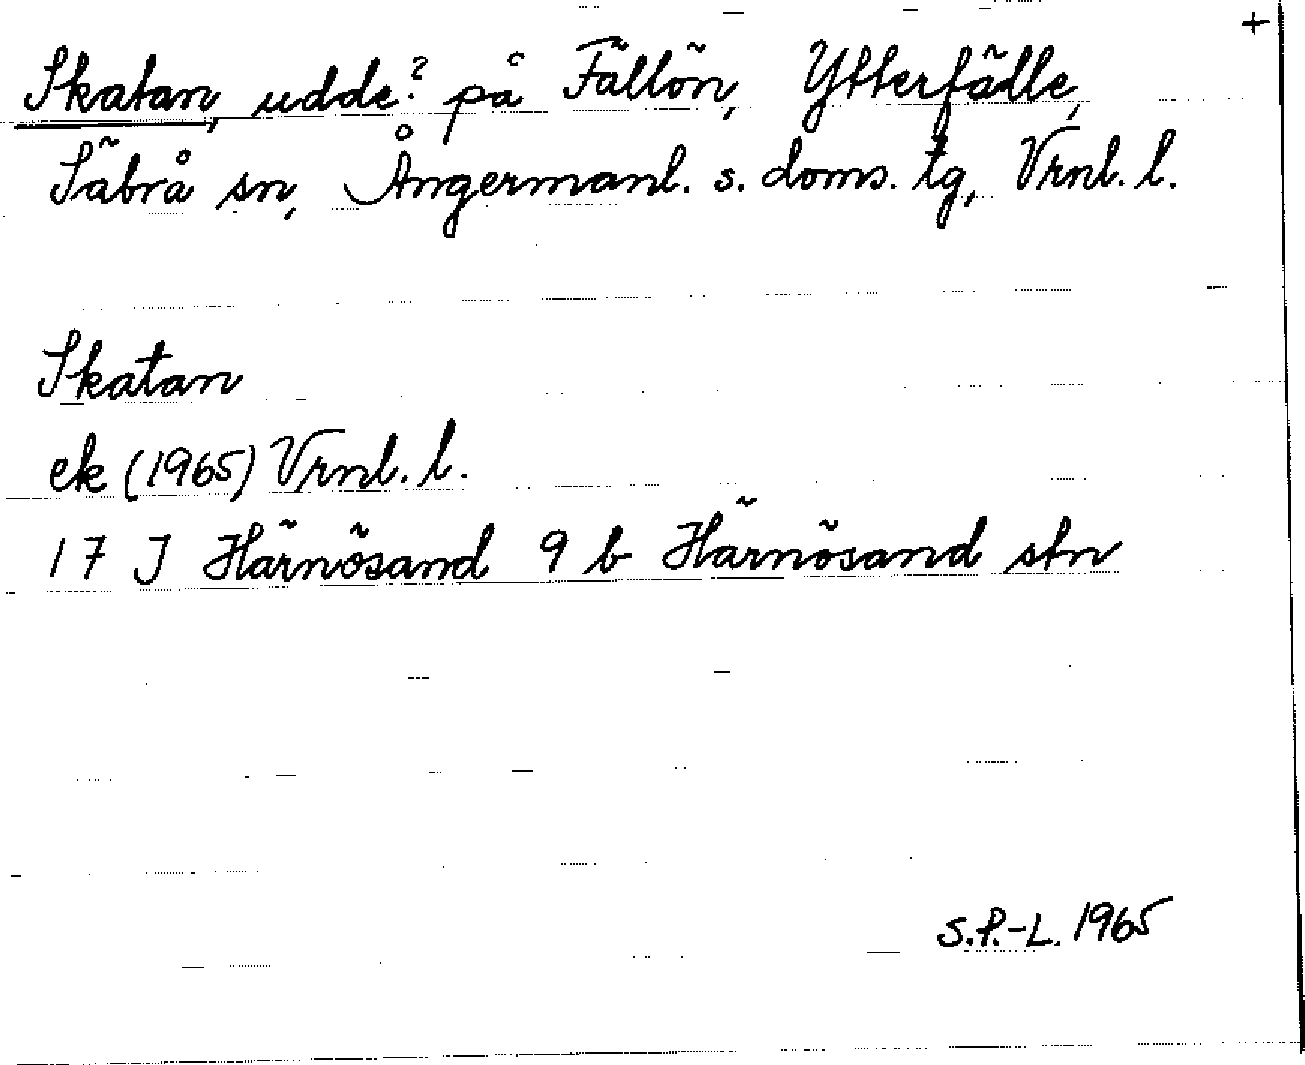 +
Skatan, udde? på Fällön, Ytterfälle,
Säbrå sn, Ångermanl. s. doms. tg, Vrnl. l.
Skatan
ek (1965) Vrnl. l.
17 J Härnösand 9 b Härnösand stn
S.P.-L. 1965